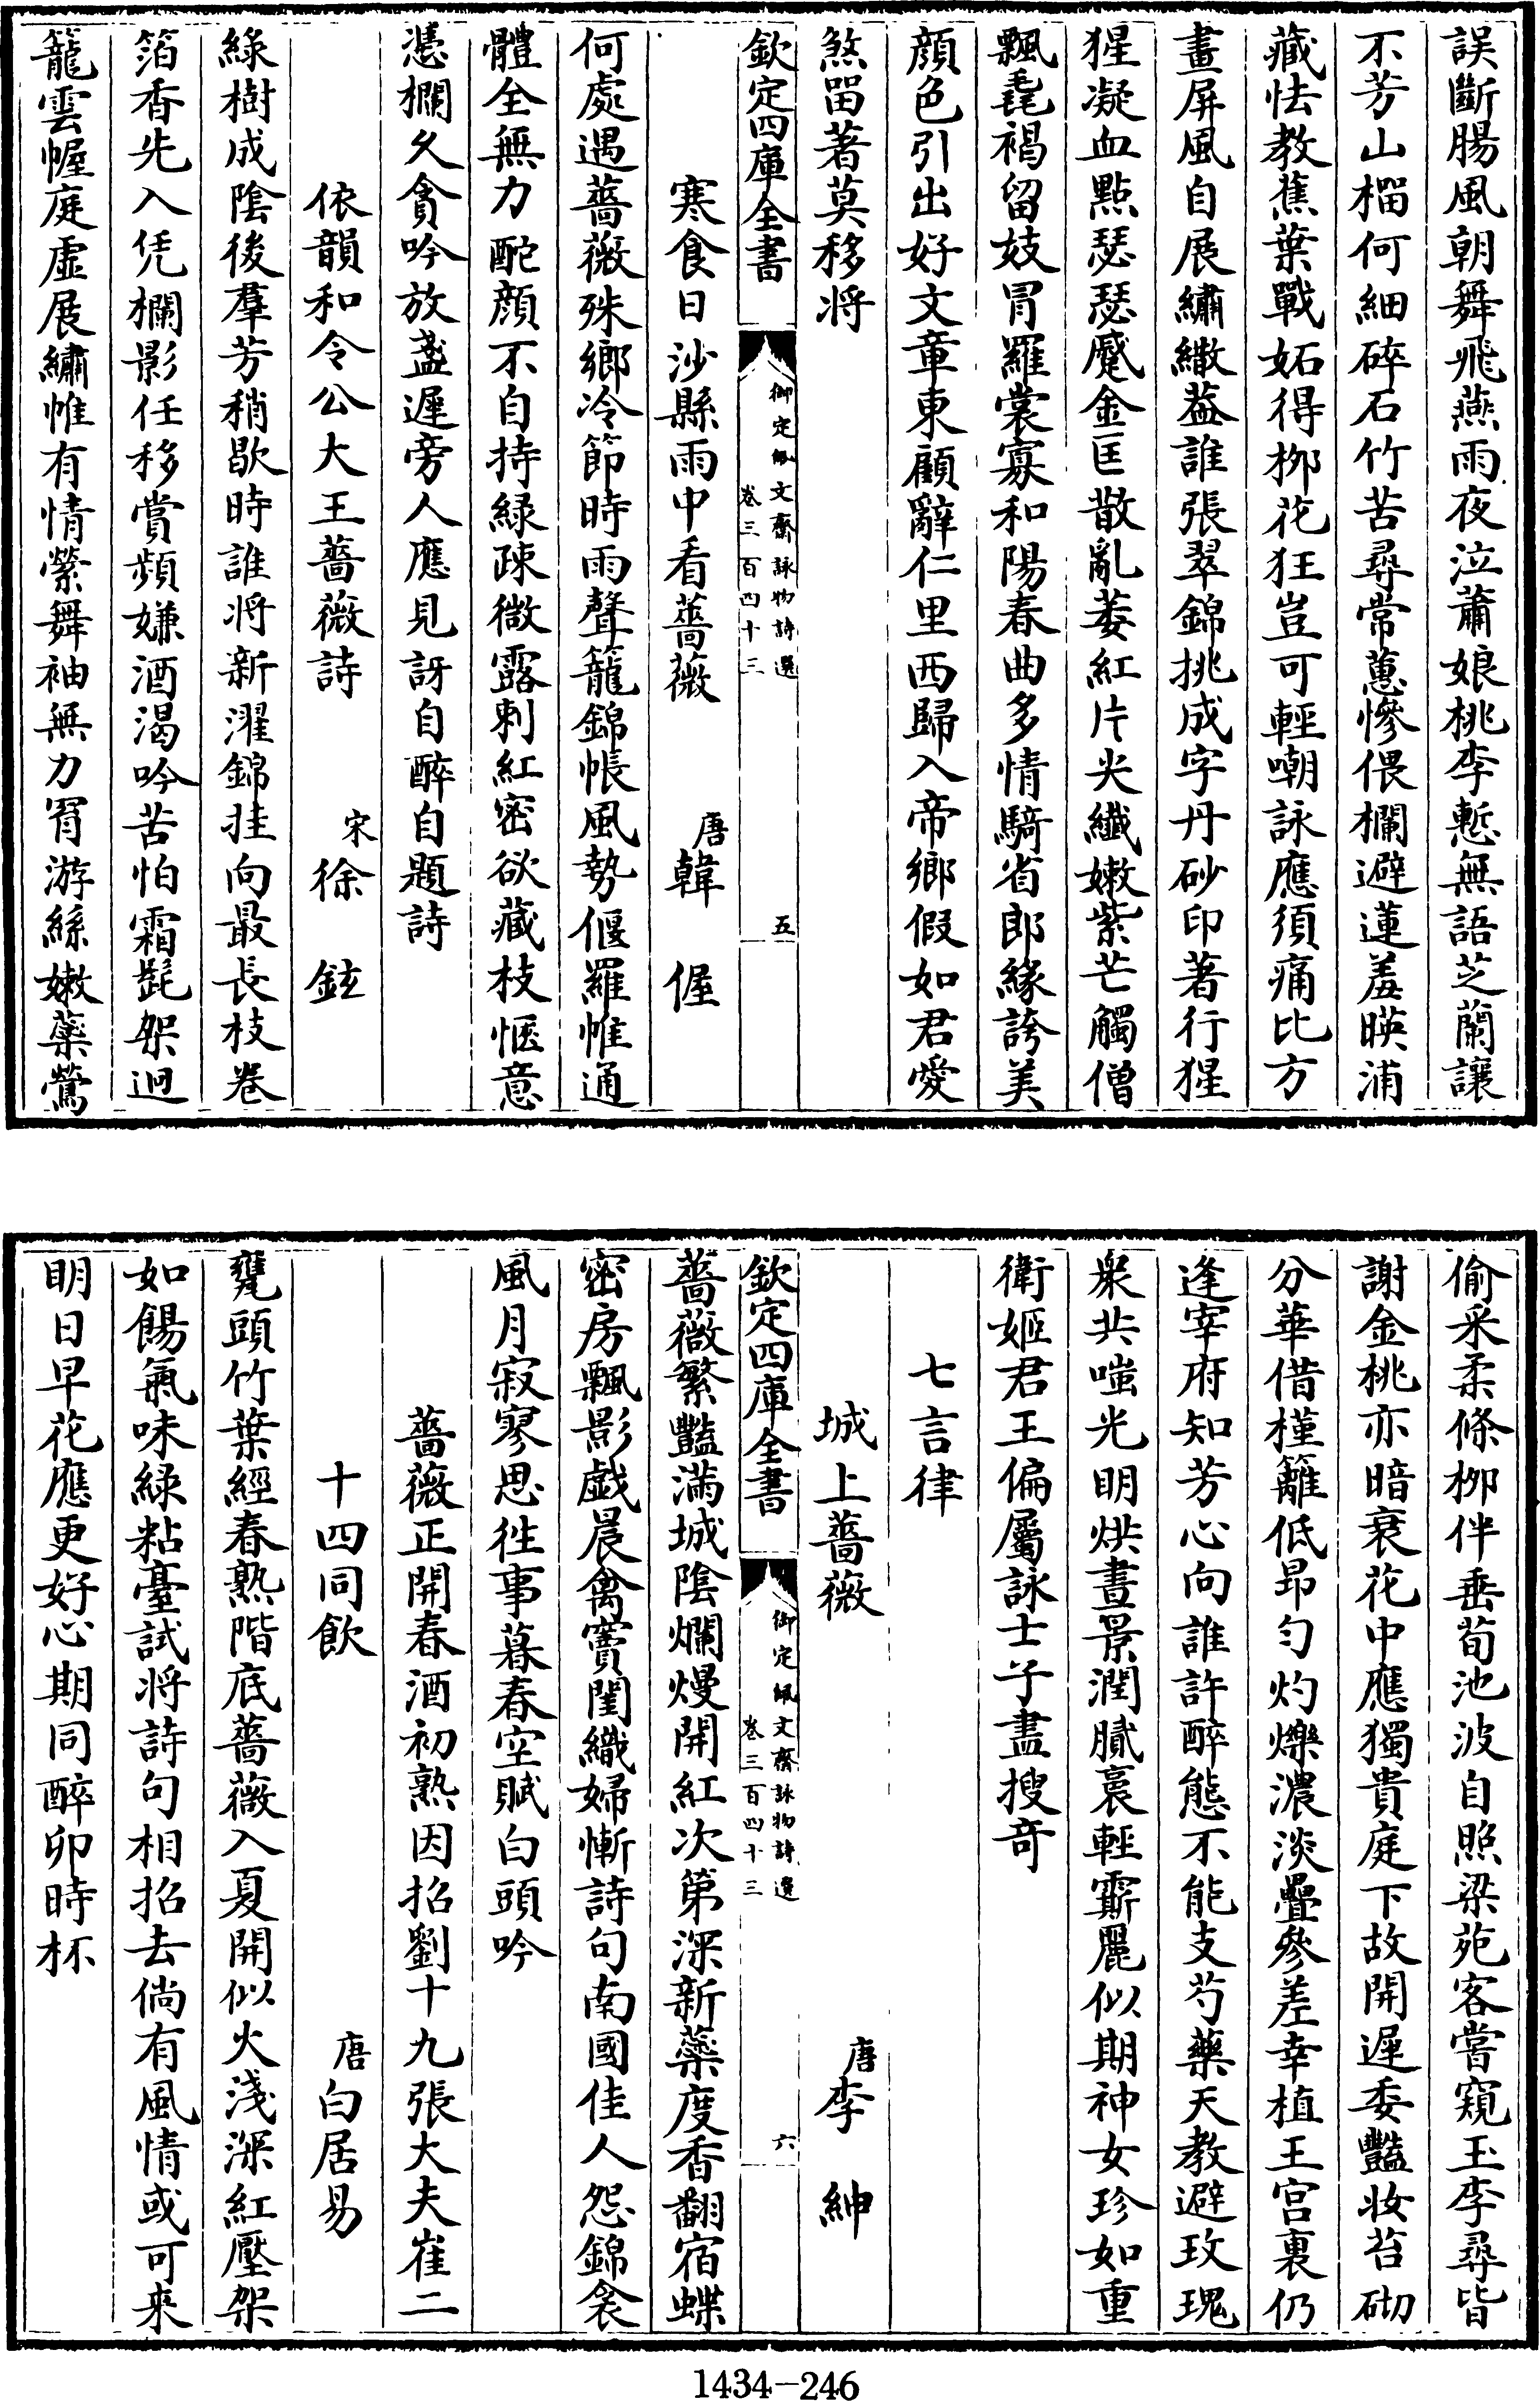 誤斷腸風朝舞飛燕雨夜泣蕭娘桃李慙無語芝蘭讓
不芳山榴何細碎石竹苦尋常蕙慘偎欄避蓮羞映浦
藏怯教蕉葉戰妬得栁花狂豈可輕嘲詠應須痛比方
畫屏風自展繡繖葢誰張翠錦挑成字丹砂印著行猩
猩凝血㸃瑟瑟蹙金匡散亂萎紅片尖纖嫩紫芒觸僧
飄毳褐留妓冐羅裳寡和陽春曲多情騎省郎緣誇美
顔色引出好文章東顧辭仁里西歸入帝鄉假如君愛
煞留著莫移将
欽定四庫全書
御定佩文齋詠物詩選
卷三百四十三
五
寒食日沙縣雨中看薔薇
唐韓偓
何處遇薔薇殊鄉冷節時雨聲籠錦帳風勢偃羅帷通
體全無力酡顔不自持緑疎微露刺紅密欲藏枝愜意
憑欄久貪吟放盞遲旁人應見訝自醉自題詩
依韻和令公大王薔薇詩
宋徐鉉
綠樹成陰後羣芳稍歇時誰将新濯錦挂向最長枝卷
箔香先入凭欄影任移賞頻嫌酒渴吟苦怕霜髭架迥
籠雲幄庭虛展繡帷有情縈舞袖無力胃游絲嫩蘂鶯
偷采柔條栁伴垂荀池波自照梁苑客嘗窺玉李尋皆
謝金桃亦暗衰花中應獨貴庭下故開遲委豔妝苔砌
分華借槿籬低昻勻灼爍濃淡疊參差幸植王宫裏仍
逢宰府知芳心向誰許醉態不能支芍藥天教避玫瑰
衆共嗤光明烘晝景潤膩裛輕霏麗似期神女珍如重
衛姬君王偏屬詠士子盡搜竒
七言律
城上薔薇
唐李紳
欽定四庫全書
御定佩文齋詠物詩選
卷三百四十三
六
薔薇繁豔滿城陰爛熳開紅次第深新蘂度香翻宿蝶
密房飄影戯晨禽竇閨織婦慚詩句南國佳人怨錦衾
風月寂寥思徃事暮春空賦白頭吟
薔薇正開春酒初熟因招劉十九張大夫崔二
十四同飲
唐白居易
甕頭竹葉經春熟階底薔薇入夏開似火淺深紅壓架
如餳氣味緑粘臺試将詩句相招去倘有風情或可来
明日早花應更好心期同醉卯時杯
1434-246